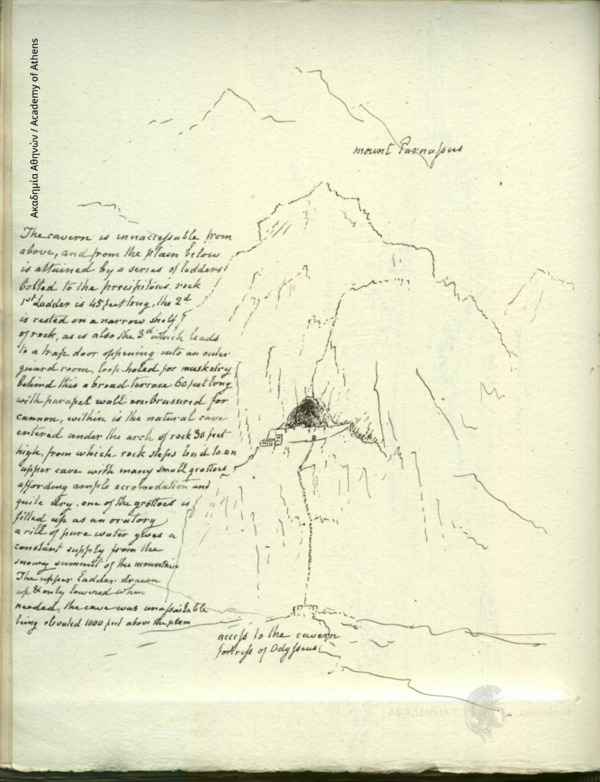 Ακαδημία Αθηνών / Academy of Athens
mount Parnassus
The cavern is innacessable from
above, and from the plain below
is attained by a series of ladders
bolted to the precipitous rock
1st Ladder is 45 feet long, the 2d
is rested on a narrow shelf
of rock, as is also the 3d which leads
to a trap door oppening into an outer
guard room, loop-holed for musketry
behind this a broad terrace 60 feet long
with parapet wall embrasured for
cannon, within is the natural cave
entered under the arch of rock 30 feet
high, from which rock steps lead to an
upper cave with many small grottoes
affording ample accomodation and
quite dry. one of the grottoes is
fitted up as an oratory
a rill of pure water gives a
constant supply from the
snowy summit of the mountain
The upper ladder drawn
up & only lowered when
needed, the cave was unassailable
being elevated 1000 feet above the plain
access to the cavern
fortress of Odysseus
ΑΚΑΔΗΜΙΑ ΑΘΗΝΩΝ